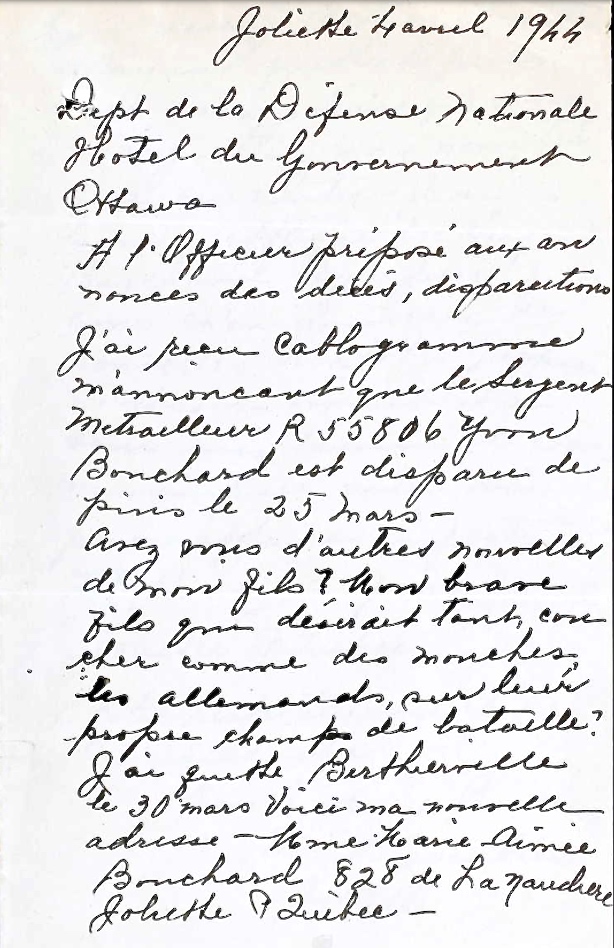 Joliette 4 avril 1944
Dept de la Défense Nationale
Hotel du Gouvernement
Ottawa
A l'Officier préposé aux an
nonces des décés, disparitions
J'ai reçu Cablogramme
m'annoncant que le Sergent
Metrailleur R 55806 Yvon
Bouchard est disparu de
puis le 25 Mars —
Avez vous d'autres nouvelles
de mon fils? Mon brave
fils qui désirait tant, cou
cher comme des mouches,
les allemands, sur leur
propre champs de bataille?
J'ai quitté Berthierville
le 30 mars Voici ma nouvelle
adresse — Mme Marie-Aimée
Bouchard 828 de Lanaudiere
Joliette P Québec —